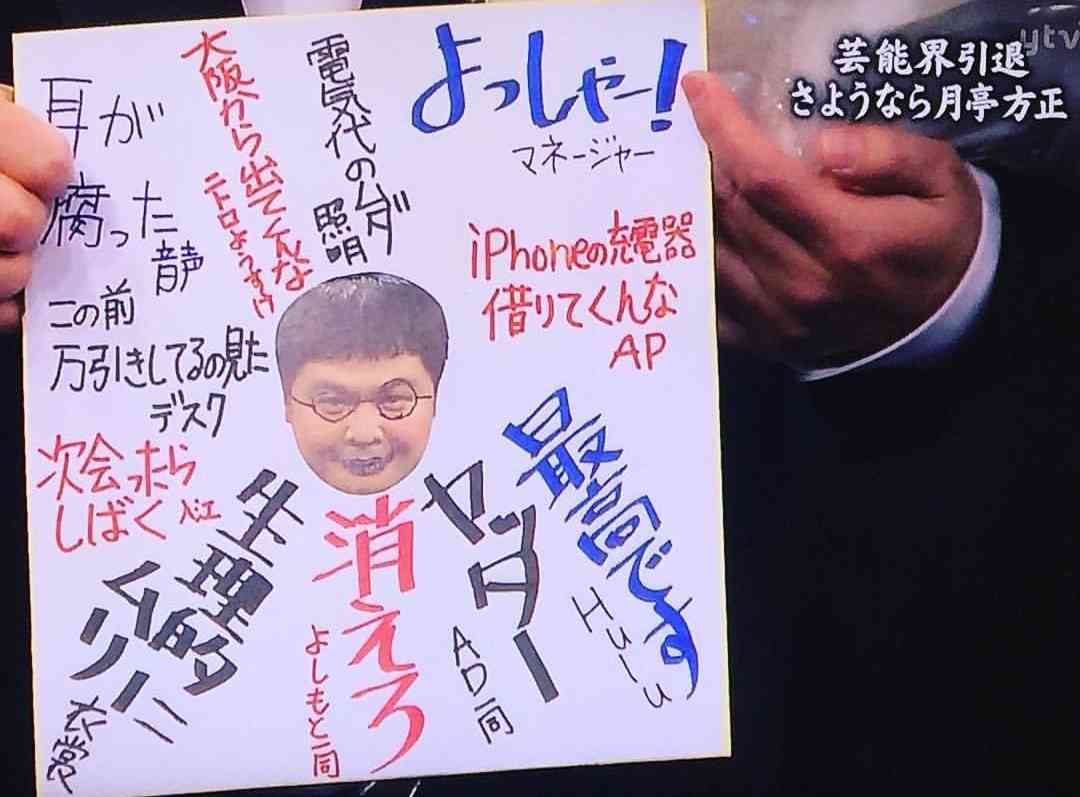 ytv
芸能界引退
さようなら月亭方正
よっしゃー!
マネージャー
電気代のムダ
照明
大阪から出てくんな
ニトロようすけ
耳が
腐った
音声
iPhoneの充電器
借りてくんな
AP
この前
万引きしてるの見た
デスク
次会ったら
しばく 入江
最高です
Hulu
ヤッター
AD一同
消えろ
よしもと一同
生理的ニ
ムリ